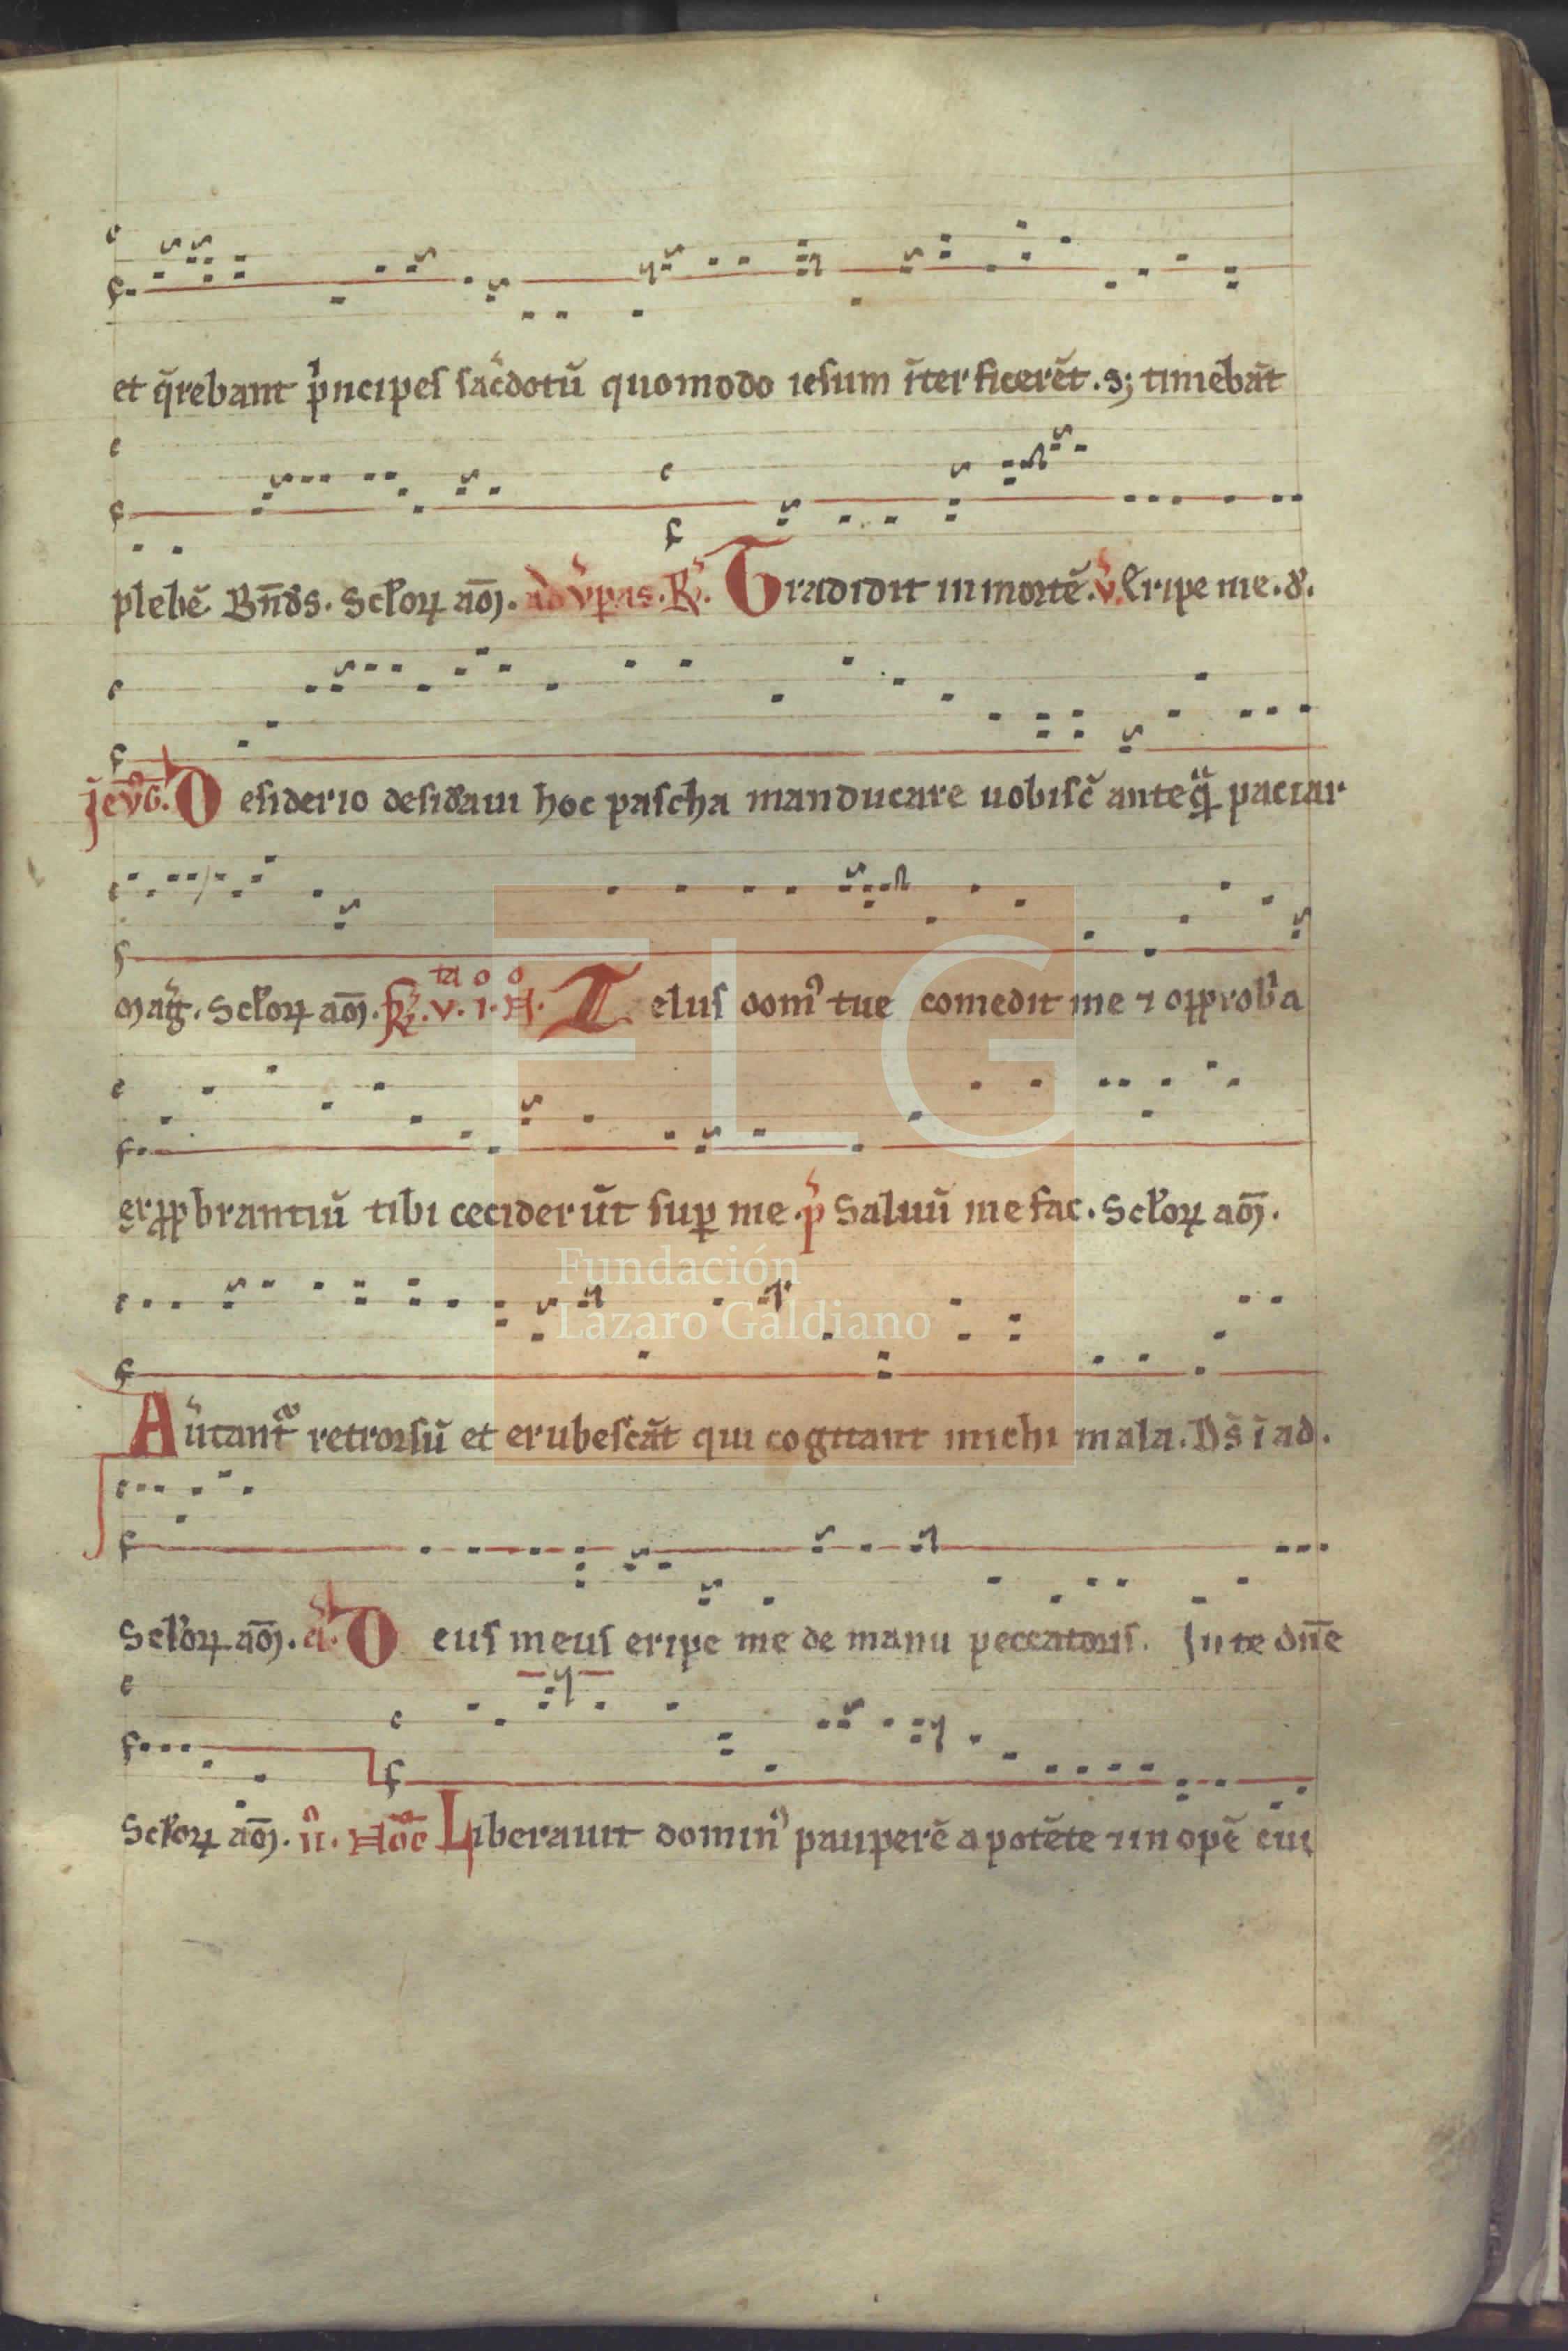 et q̄rebant p̍ncipes sac̄dotū quomodo iesum īterficerēt. s; timebāt
plebē Bn̄ds. Scl̓oꝝ am̄. ad vp̄as. R̓. Tradidit in mortē. v̓. Eripe me. d.
In evg̓. Desiderio desid̓aui hoc pascha manducare uobiscū anteq̄ paciar
mag̓. Scl̓oꝝ am̄. fr̓. v. i. n. Zelus dom᾿ tue comedit me ⁊ opprob̓a
exp̱brantiū tibi ceciderūt suꝑ me. p̓ Saluū me fac. Scl̓oꝝ am̄.
Au̓tant᷑ retrorsū et erubescāt qui cogitant michi mala. Ds̄ ī ad.
Scl̓oꝝ am̄. a̓. Deus meus eripe me de manu peccatoris. In te dn̄e
Scl̓oꝝ am̄. īı. Noc̄ Liberauit domin᾿ pauperē a potēte ⁊ inopē cui
FLG
Fundación
Lázaro Galdiano